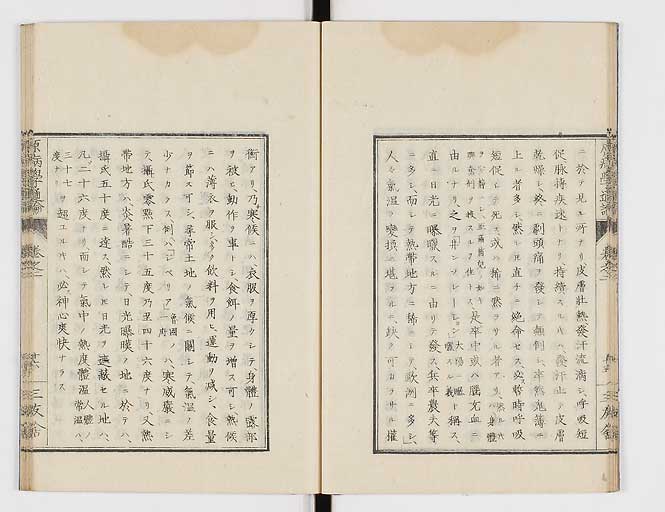 ニ於テ見ル所ナリ皮膚壯熱發汗流滴シ、呼吸短
促脉搏疾速トナリ、持續スルキハ、發汗止テ皮膚
乾燥シ、終ニ劇頭痛ヲ發シテ顛倒シ、卒然鬼簿ニ
上ル者多シ、然レ直チニ絶命セス、暫時呼吸
短促シテ死ス、或ハ稀ニ甦ヲサル者アリ、
是卒中或ハ腦充血ニ
由ルナリ、之ヲ「インソレーション」ト稱ス、
直ニ日光ニ曝スルニ由リテ發ス、兵卒農夫等
ニ多シ、而レテ熱帶地方ニ稀ニシテ、歐洲ニ多シ、
人ノ氣温ノ變換ニ堪ヲルハ、缺ク可カラサル權
衡アリ、乃寒候ニハ、衣服ヲ厚クシテ身體ノ露部
ヲ被ヒ、動作ヲ事トシ食餌ノ量ヲ増ス可シ、熱候
ニハ薄衣ヲ服シ、多ク飲料ヲ用ヒ、運動ヲ減シ、食量
ヲ節ス可シ、尋常土地ノ氣候ニ關シテ、氣温ノ差
少ナカラス、例ハ「シベリア」魯國ノ一府ノハ寒威嚴ニシ
テ、攝氏寒點下三十五度乃至四十六度ナリ、又熱
帶地方ハ、炎暑酷ニシテ、日光曝映ノ地ニ於テハ、
攝氏五十度ニ達ス、然レ日光ヲ遮蔽セル地ハ、
凡二十六度ナリ、而レテ氣中ノ熱度體温人體ノ常温ハ、
三十七度ナリヲ超ユルキハ、必神心爽快ナラス
原病學通論
卷之二
三友舎